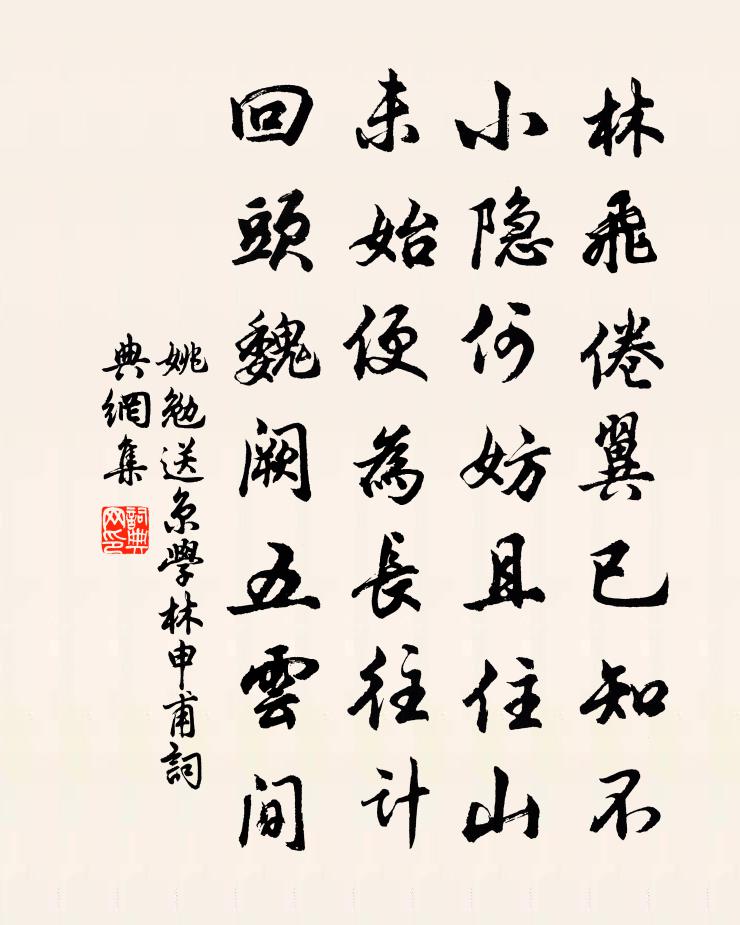 林飛倦翼已知不
小隐何妨且住山
未始便為長往計
回頭魏阙五雲间
姚勉送京學林申甫詞
典網集
詞典
网印